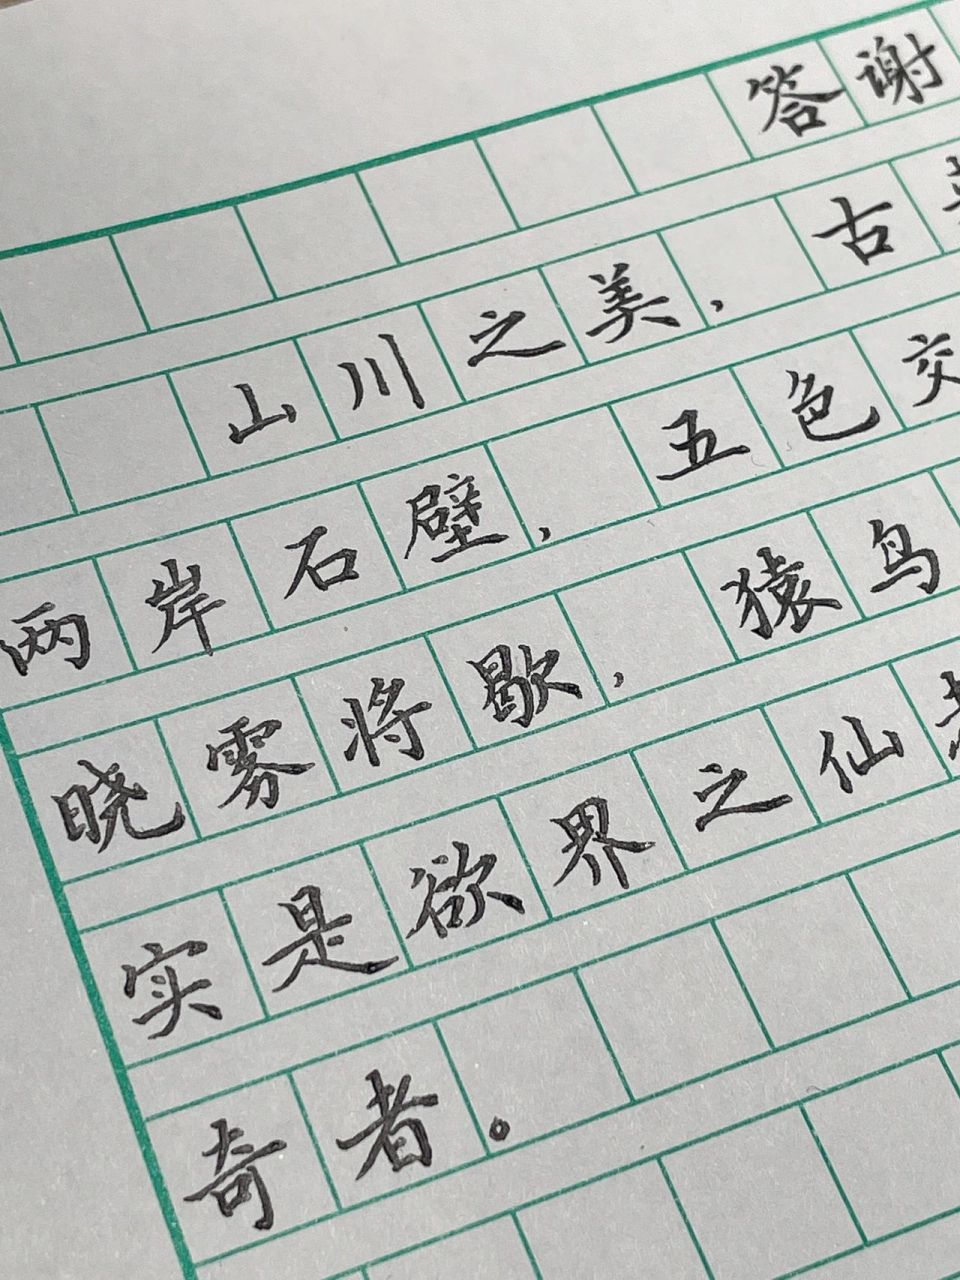 答谢
山川之美，古
两岸石壁，五色交
晓雾将歇，猿鸟
实是欲界之仙
奇者。